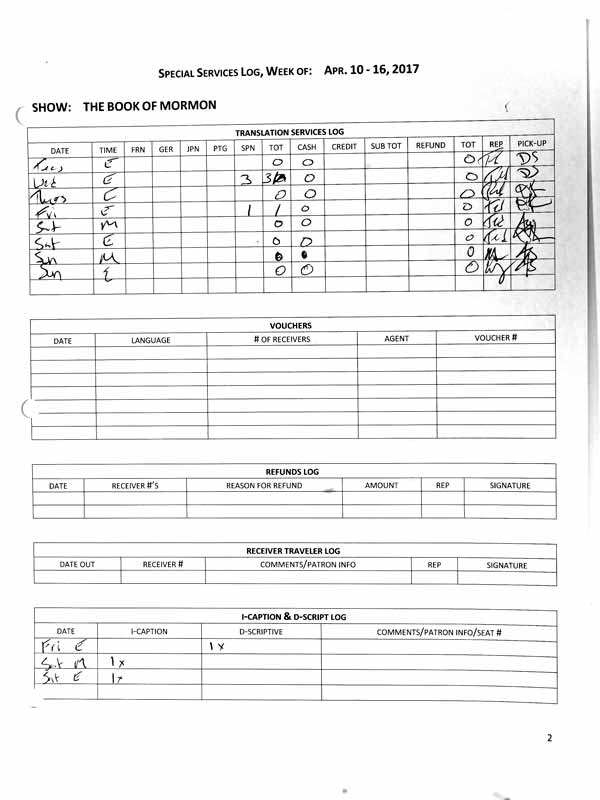 SPECIAL SERVICES LOG, WEEK OF: APR. 10 - 16, 2017
SHOW: THE BOOK OF MORMON
TRANSLATION SERVICES LOG
DATE TIME FRN GER JPN PTG SPN TOT CASH CREDIT SUB TOT REFUND TOT REP PICK-UP
Tues E 0 0 0 DS
Wed E 3 3 0 0 DS
Thurs E 0 0 0
Fri E 1 1 0 0 Ted
Sat M 0 0 0 Ted
Sat E 0 0 0 Ted
Sun M 0 0 0
Sun E 0 0 0
VOUCHERS
DATE LANGUAGE # OF RECEIVERS AGENT VOUCHER #
REFUNDS LOG
DATE RECEIVER #'S REASON FOR REFUND AMOUNT REP SIGNATURE
RECEIVER TRAVELER LOG
DATE OUT RECEIVER # COMMENTS/PATRON INFO REP SIGNATURE
I-CAPTION & D-SCRIPT LOG
DATE I-CAPTION D-SCRIPTIVE COMMENTS/PATRON INFO/SEAT #
Fri E 1 x
Sat M 1 x
Sat E 1x
2